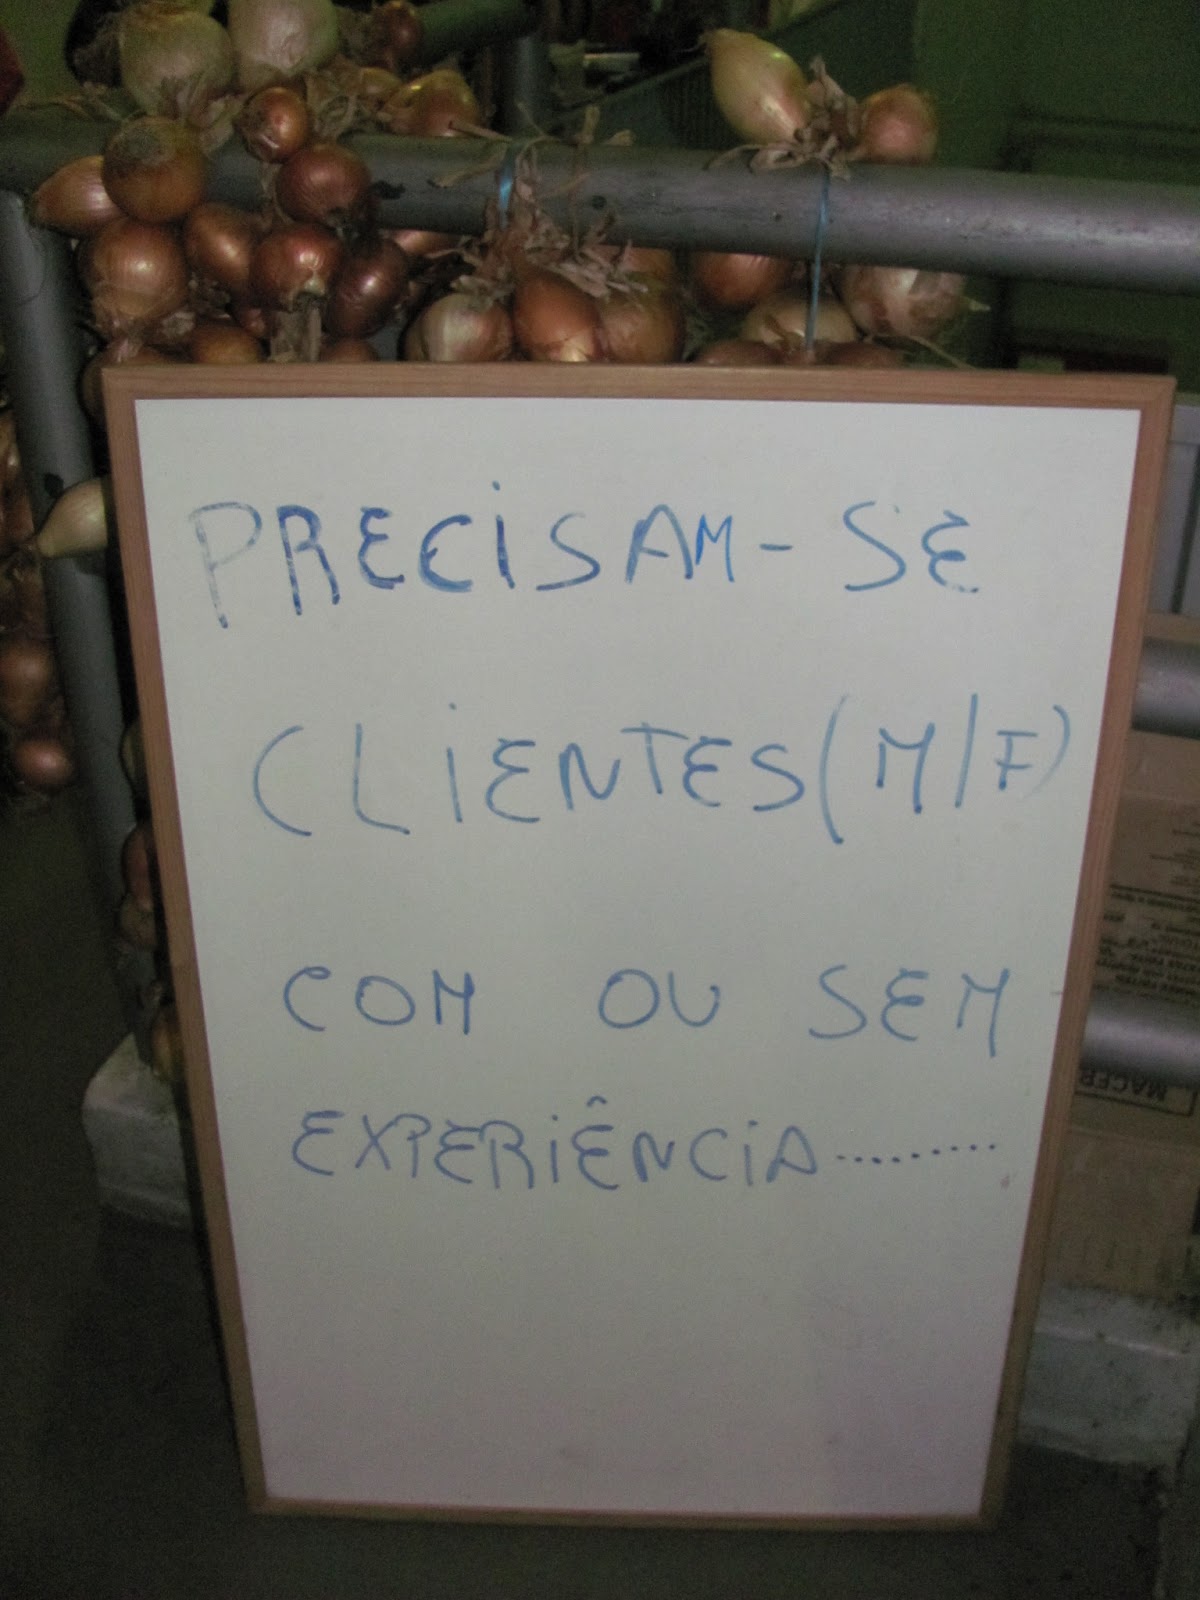 PRECISAM-SE
CLIENTES (M/F)
COM OU SEM
EXPERIÊNCIA..........
MACER